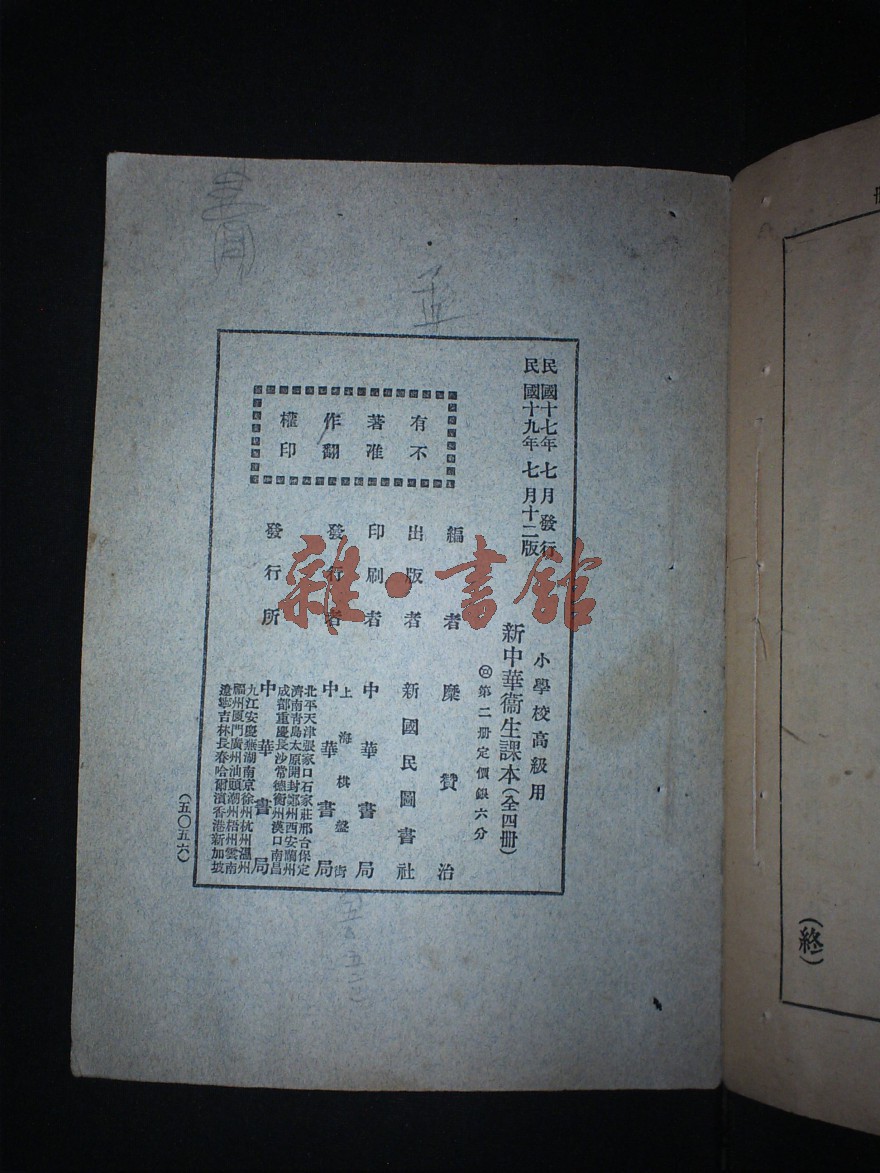 民國十七年七月發行
民國十九年七月十二版
小學校高級用
新中華衞生課本(全四册)
第二册定價銀六分
有著作權
不准翻印
編者 糜贊治
出版者 新國民圖書社
印刷者 中華書局
上海棋盤街
發行者 中華書局
發行所 中華書局
北平天津張家口石家莊邢台保定
濟南青島太原開封鄭州西安蘭州
成都重慶長沙常德衡州漢口南昌
九江安慶蕪湖南京徐州杭州溫州
福州厦門廣州汕頭潮州梧州雲南
遼寧吉林長春哈爾濱香港新加坡
(五〇五六)
(終)
雜·書館